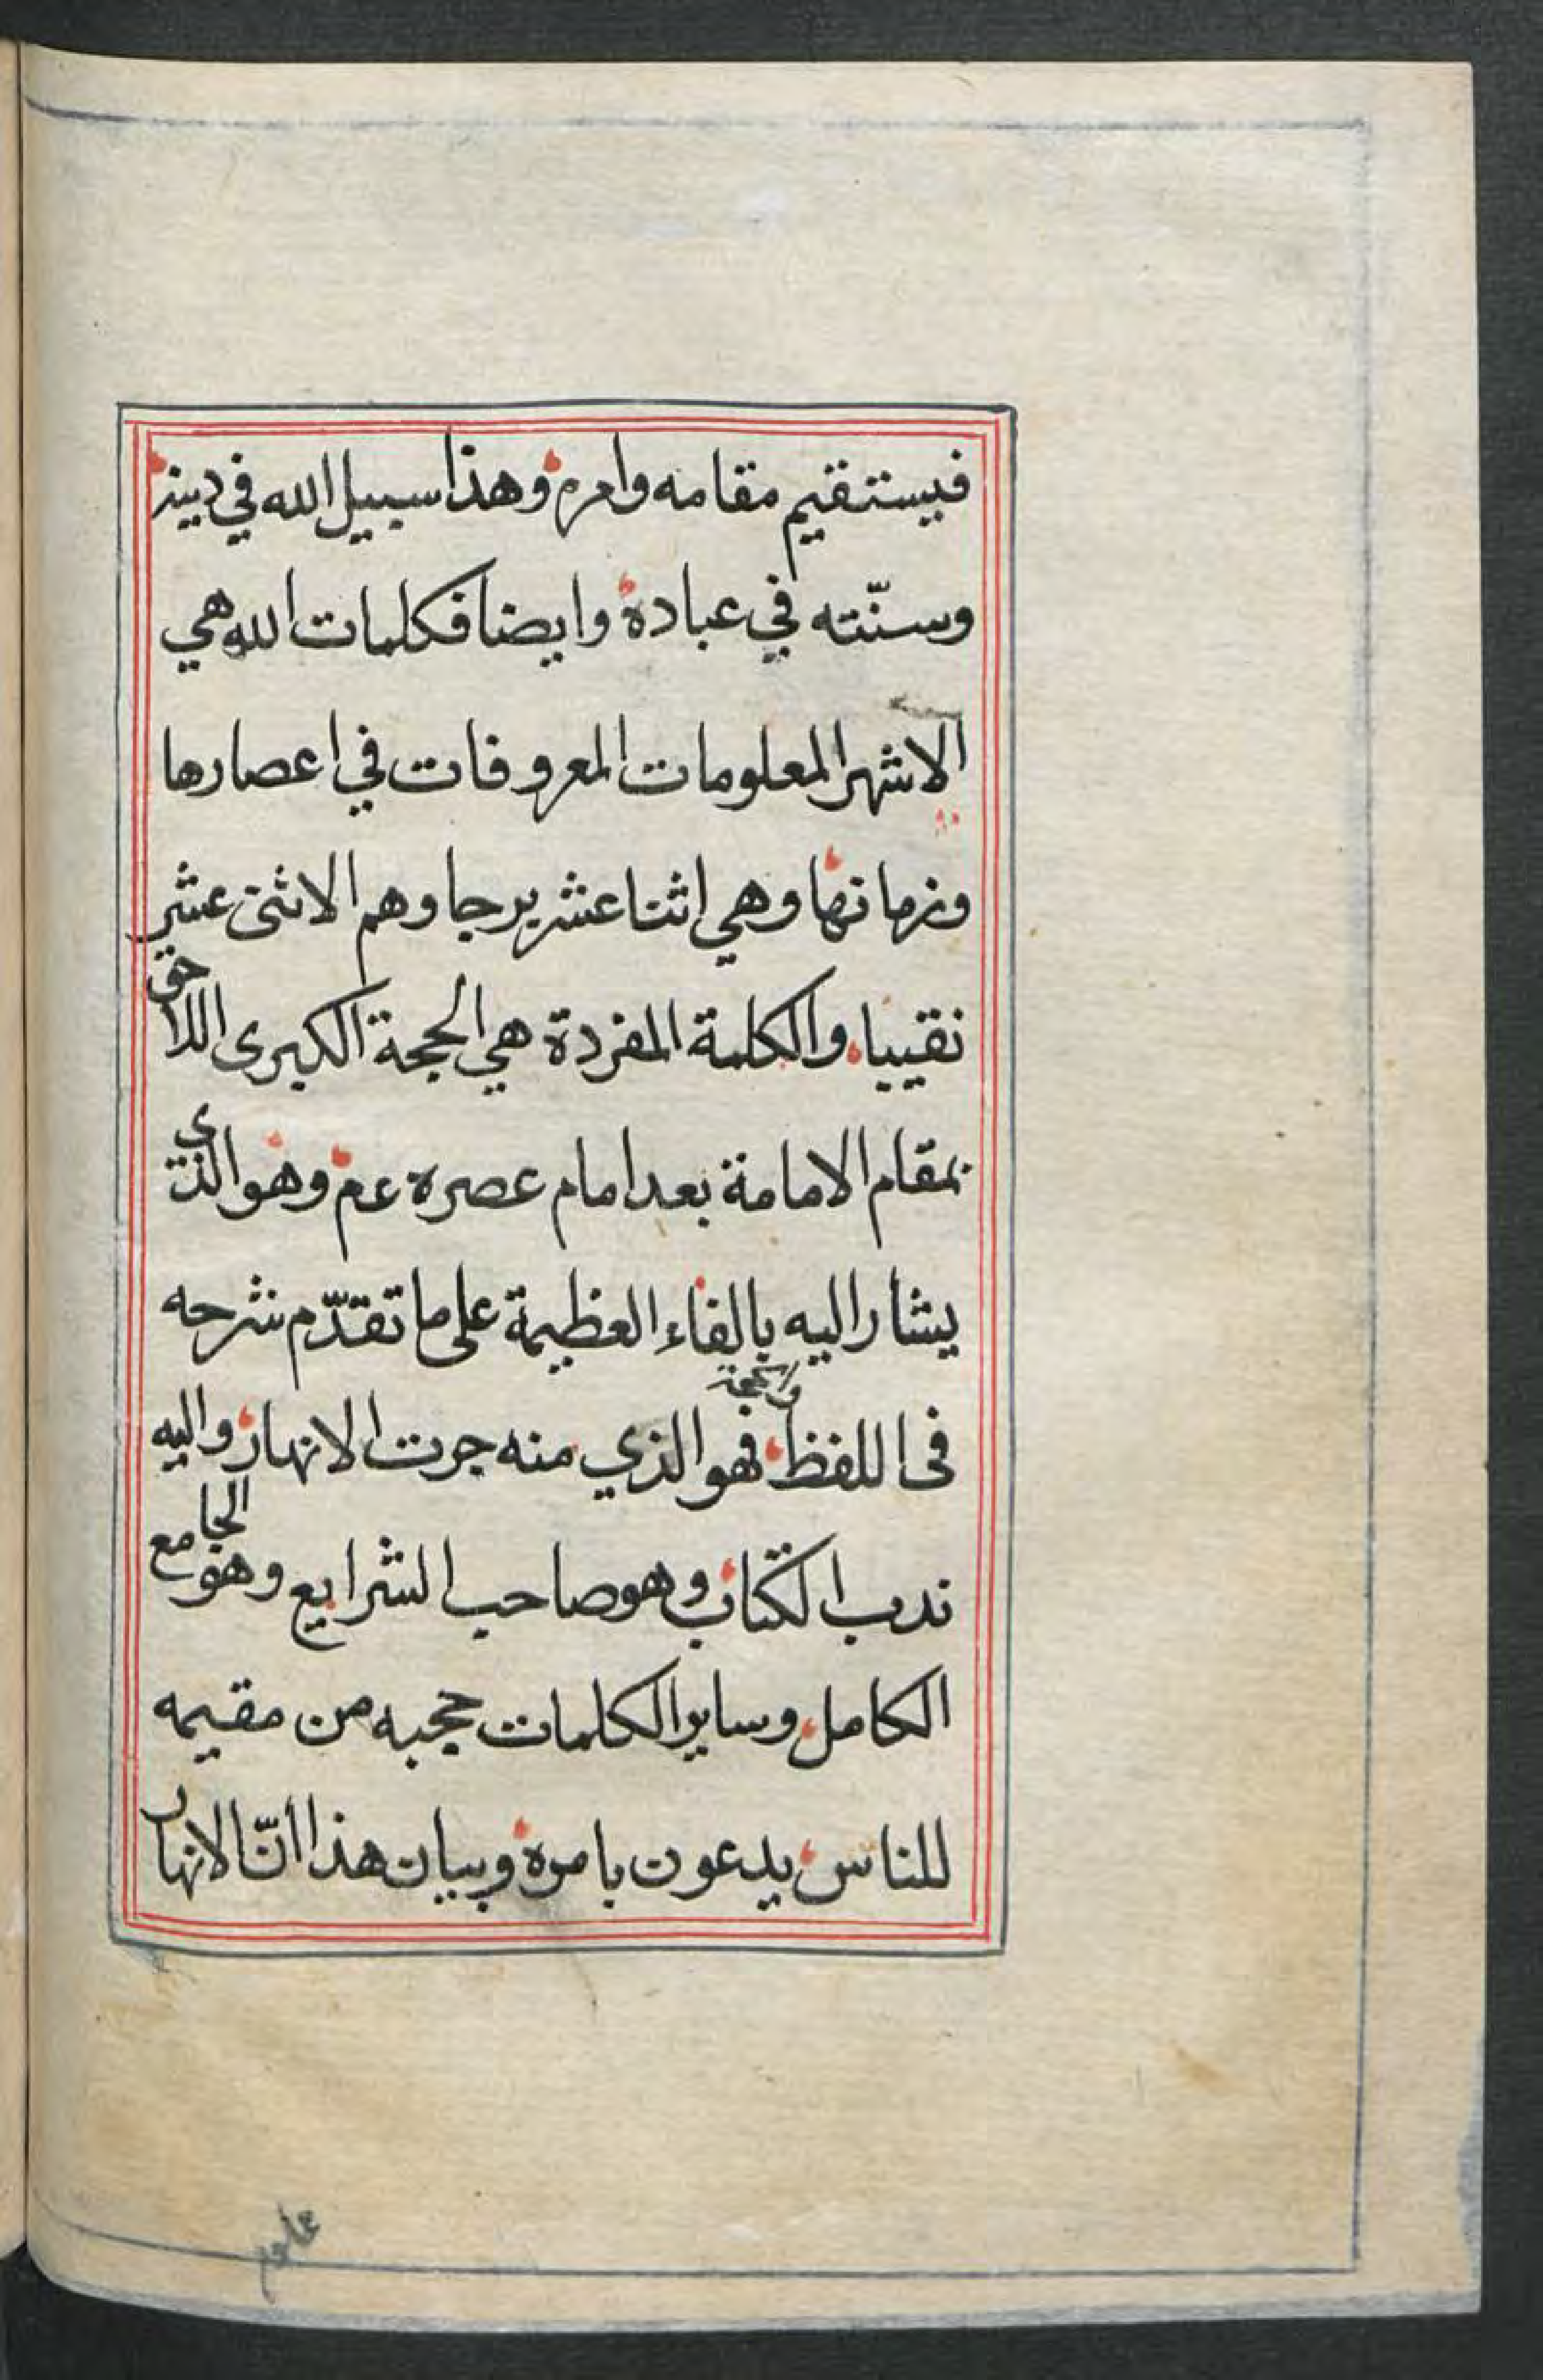 فيستقيم مقامه وامره وهذا سبيل الله في دينه
وسنّته في عباده وايضا فكلمات الله هي
الاشهر المعلومات المعروفات في اعصارها
وزمانها وهي اثنا عشر برجا وهم الاثنى عشر
نقيبا والكلمة المفردة هي الحجة الكبرى اللاحق
بمقام الامامة بعد امام عصره عم وهو الذي
يشار اليه بالفاء العظيمة على ما تقدّم شرحه
فى اللفظ فهو الذي منه جرت الانهار واليه
ندب الكتاب وهو صاحب الشرايع وهو الجامع
الكامل وساير الكلمات حججه من مقيمه
للناس يدعون بامره وبيان هذا انّ الانهار